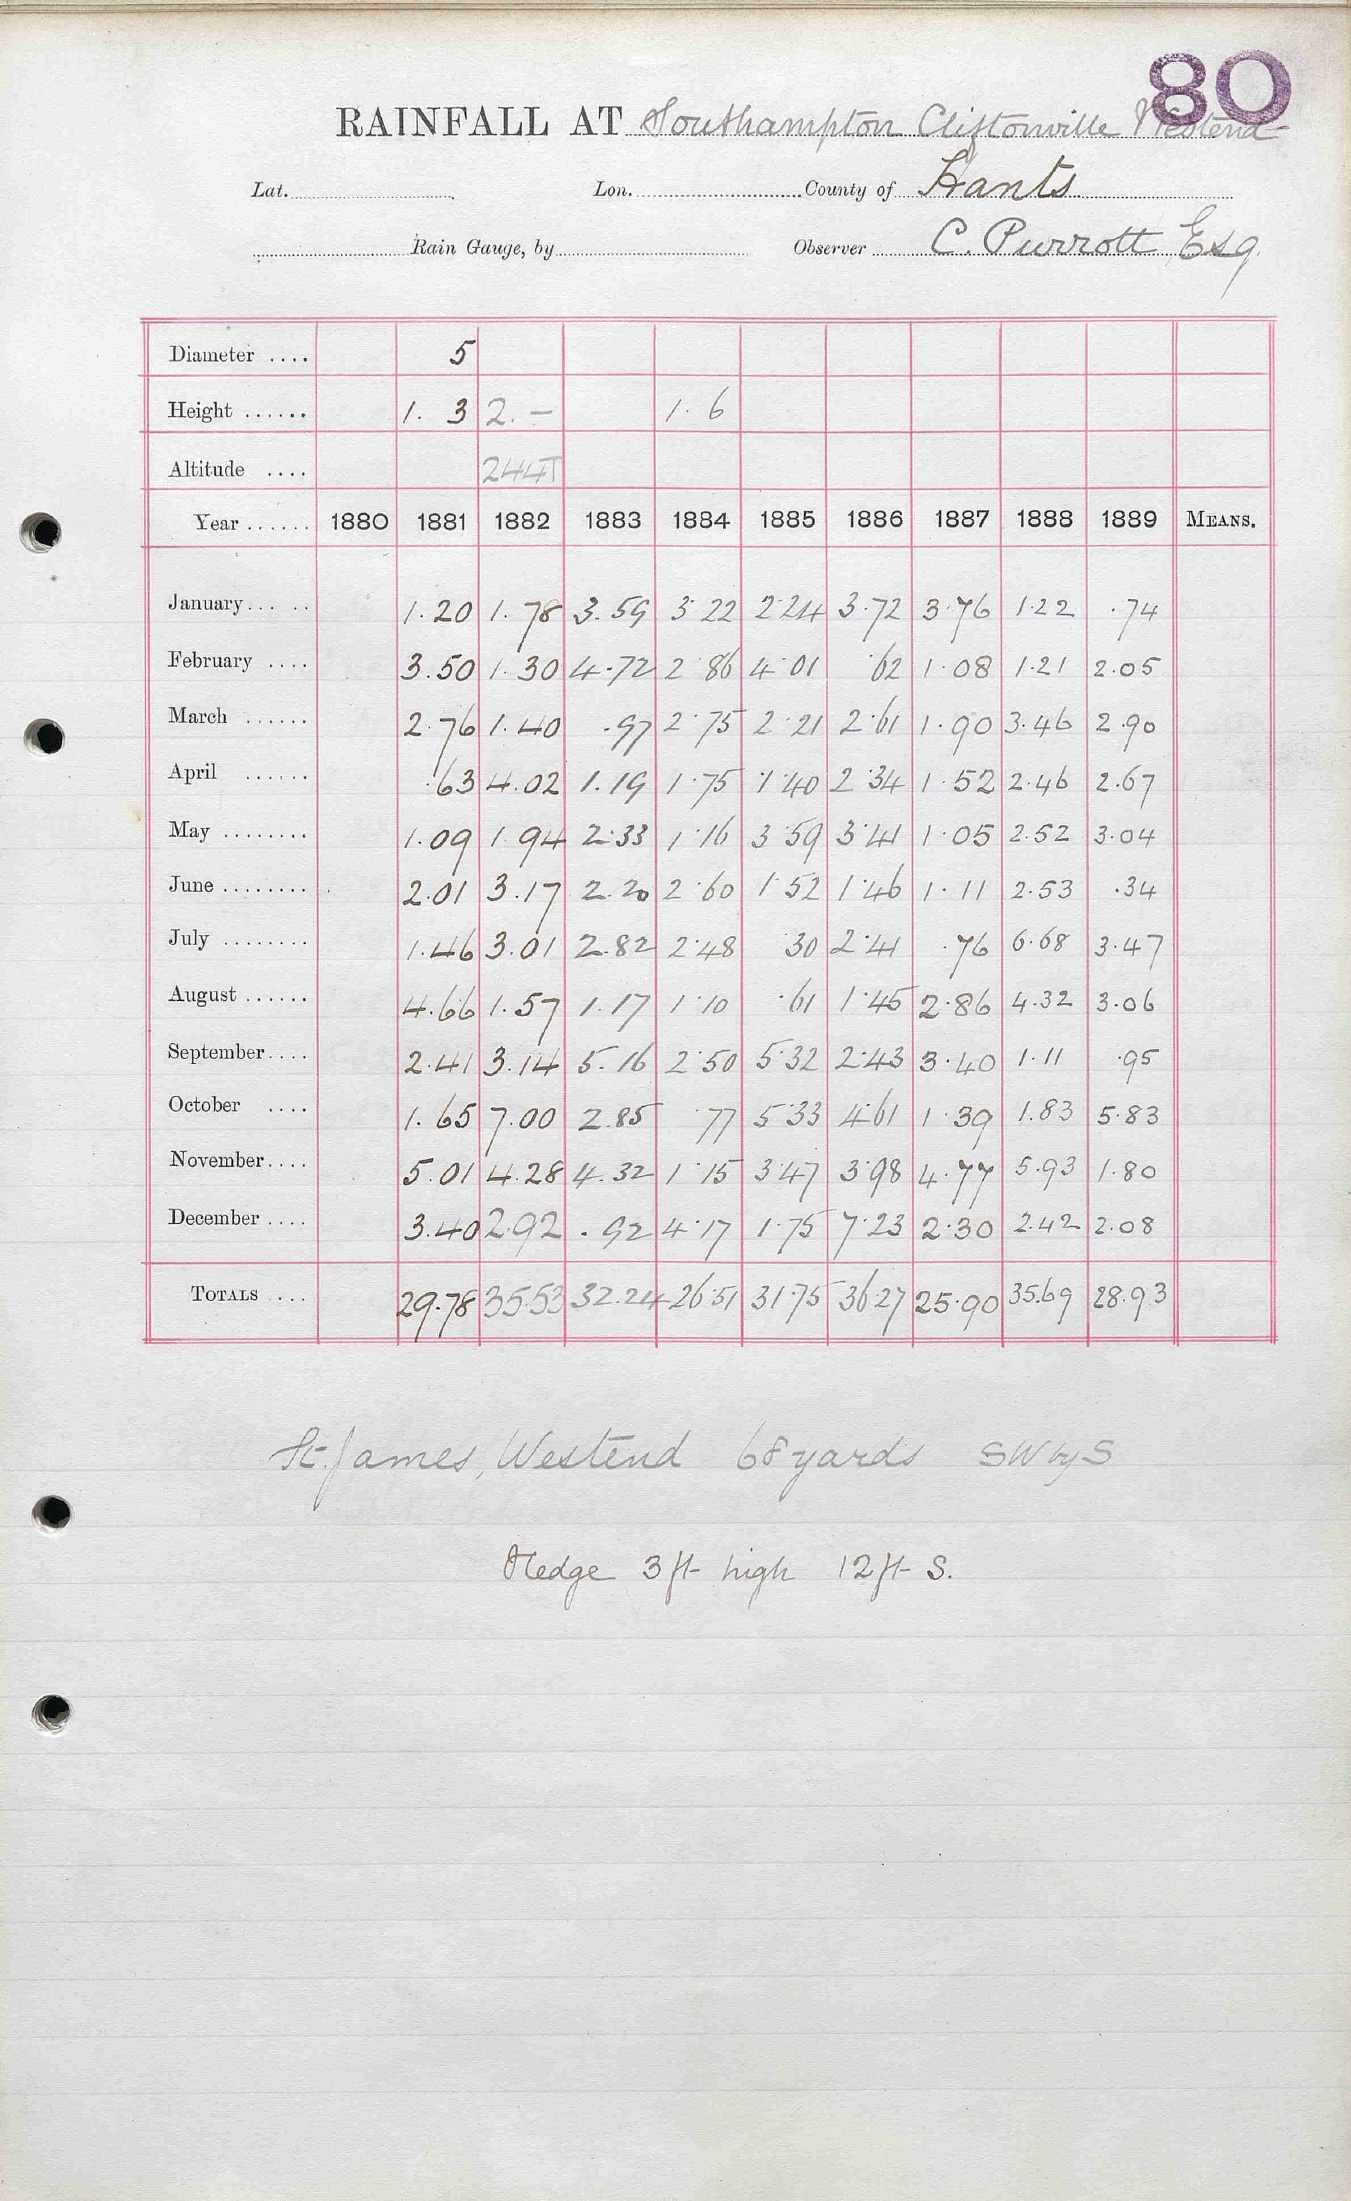 80
RAINFALL AT Southampton Cliftonville Westend
Lat. Lon. County of Hants
Rain Gauge, by Observer C. Purrott Esq.
Diameter .... 5
Height ...... 1. 3 2. — 1. 6
Altitude .... 244T
Year ...... 1880 1881 1882 1883 1884 1885 1886 1887 1888 1889 MEANS.
January... .. 1.20 1.78 3.59 3.22 2.24 3.72 3.76 1.22 .74
February .... 3.50 1.30 4.72 2.86 4.01 .62 1.08 1.21 2.05
March ...... 2.76 1.40 .97 2.75 2.21 2.61 1.90 3.46 2.90
April ...... .63 4.02 1.19 1.75 1.40 2.34 1.52 2.46 2.67
May ........ 1.09 1.94 2.33 1.16 3.59 3.41 1.05 2.52 3.04
June ........ 2.01 3.17 2.20 2.60 1.52 1.46 1.11 2.53 .34
July ........ 1.46 3.01 2.82 2.48 .30 2.41 .76 6.68 3.47
August ...... 4.66 1.57 1.17 1.10 .61 1.45 2.86 4.32 3.06
September.... 2.41 3.14 5.16 2.50 5.32 2.43 3.40 1.11 .95
October .... 1.65 7.00 2.85 .77 5.33 4.61 1.39 1.83 5.83
November.... 5.01 4.28 4.32 1.15 3.47 3.98 4.77 5.93 1.80
December .... 3.40 2.92 .92 4.17 1.75 7.23 2.30 2.42 2.08
TOTALS .... 29.78 35.53 32.24 26.51 31.75 36.27 25.90 35.69 28.93
St. James, Westend 68 yards SW by S
Hedge 3 ft high 12 ft S.